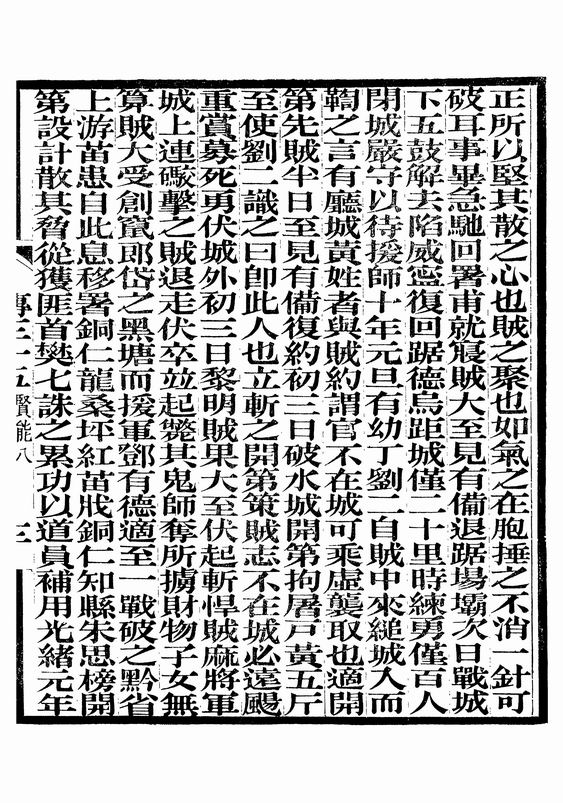 正所以堅其散之心也賊之聚也如氣之在胞捶之不消一針可
破耳事畢急馳回署甫就寢賊大至見有備退踞場壩次日戰城
下五鼓解去陷威寧復回踞德烏距城僅二十里時練勇僅百人
閉城嚴守以待援師十年元旦有幼丁劉二自賊中來縋城入而
鞫之言有廳城黃姓者與賊約謂官不在城可乘虛襲取也適開
第先賊半日至見有備復約初三日破水城開第拘屠戶黃五斤
至使劉二識之曰卽此人也立斬之開第策賊志不在城必遠颺
重賞募死勇伏城外初三日黎明賊果大至伏起斬悍賊麻將軍
城上連礮擊之賊退走伏卒竝起斃其鬼師奪所擄財物子女無
算賊大受創竄郎岱之黑塘而援軍鄧有德適至一戰破之黔省
上游苗患自此息移署銅仁龍桑坪紅苗戕銅仁知縣朱思榜開
第設計散其脅從獲匪首樊七誅之累功以道員補用光緒元年
傳三十五 賢能八 三